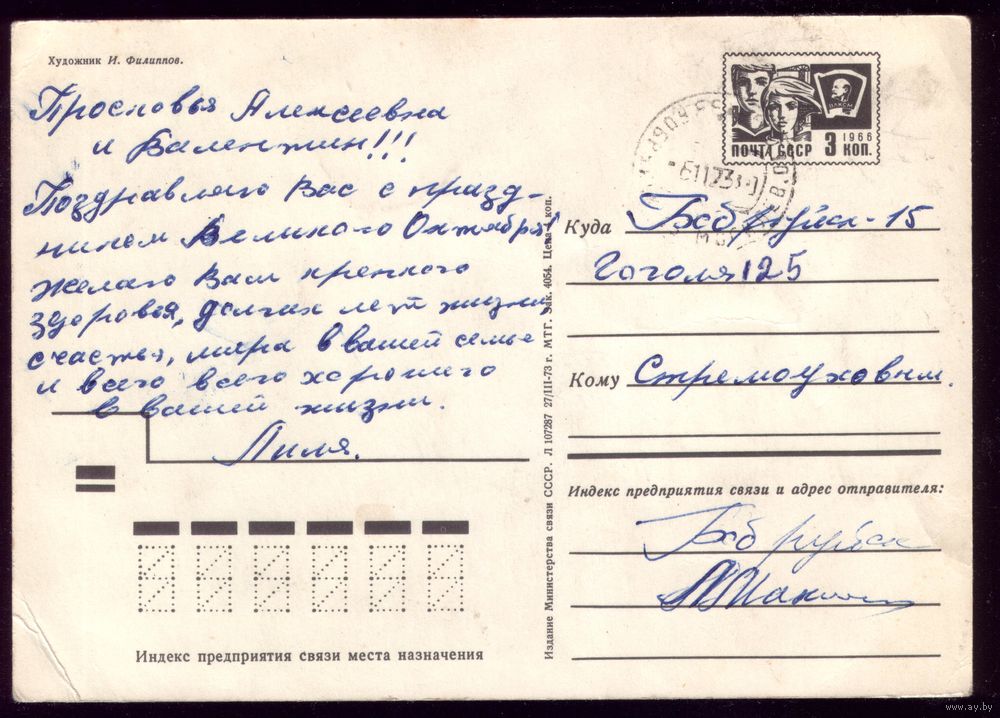 Художник И. Филиппов.
Просковья Алексеевна
и Валентин!!!
Поздравляю Вас с празд-
ником Великого Октября!
Желаю Вам крепкого
здоровья, долгих лет жизни,
счастья, мира в вашей семье
и всего всего хорошего
в вашей жизни.
Лиля.
ВЛКСМ
1966
ПОЧТА СССР 3 КОП.
Куда Бобруйск-15
Гоголя 125
Кому Стремоуховым.
Индекс предприятия связи и адрес отправителя:
Бобруйск
Индекс предприятия связи места назначения
Издание Министерства связи СССР. Л 107287 27/III-73 г. МТГ. Зак. 4054. Цена 4 коп.
www.ay.by